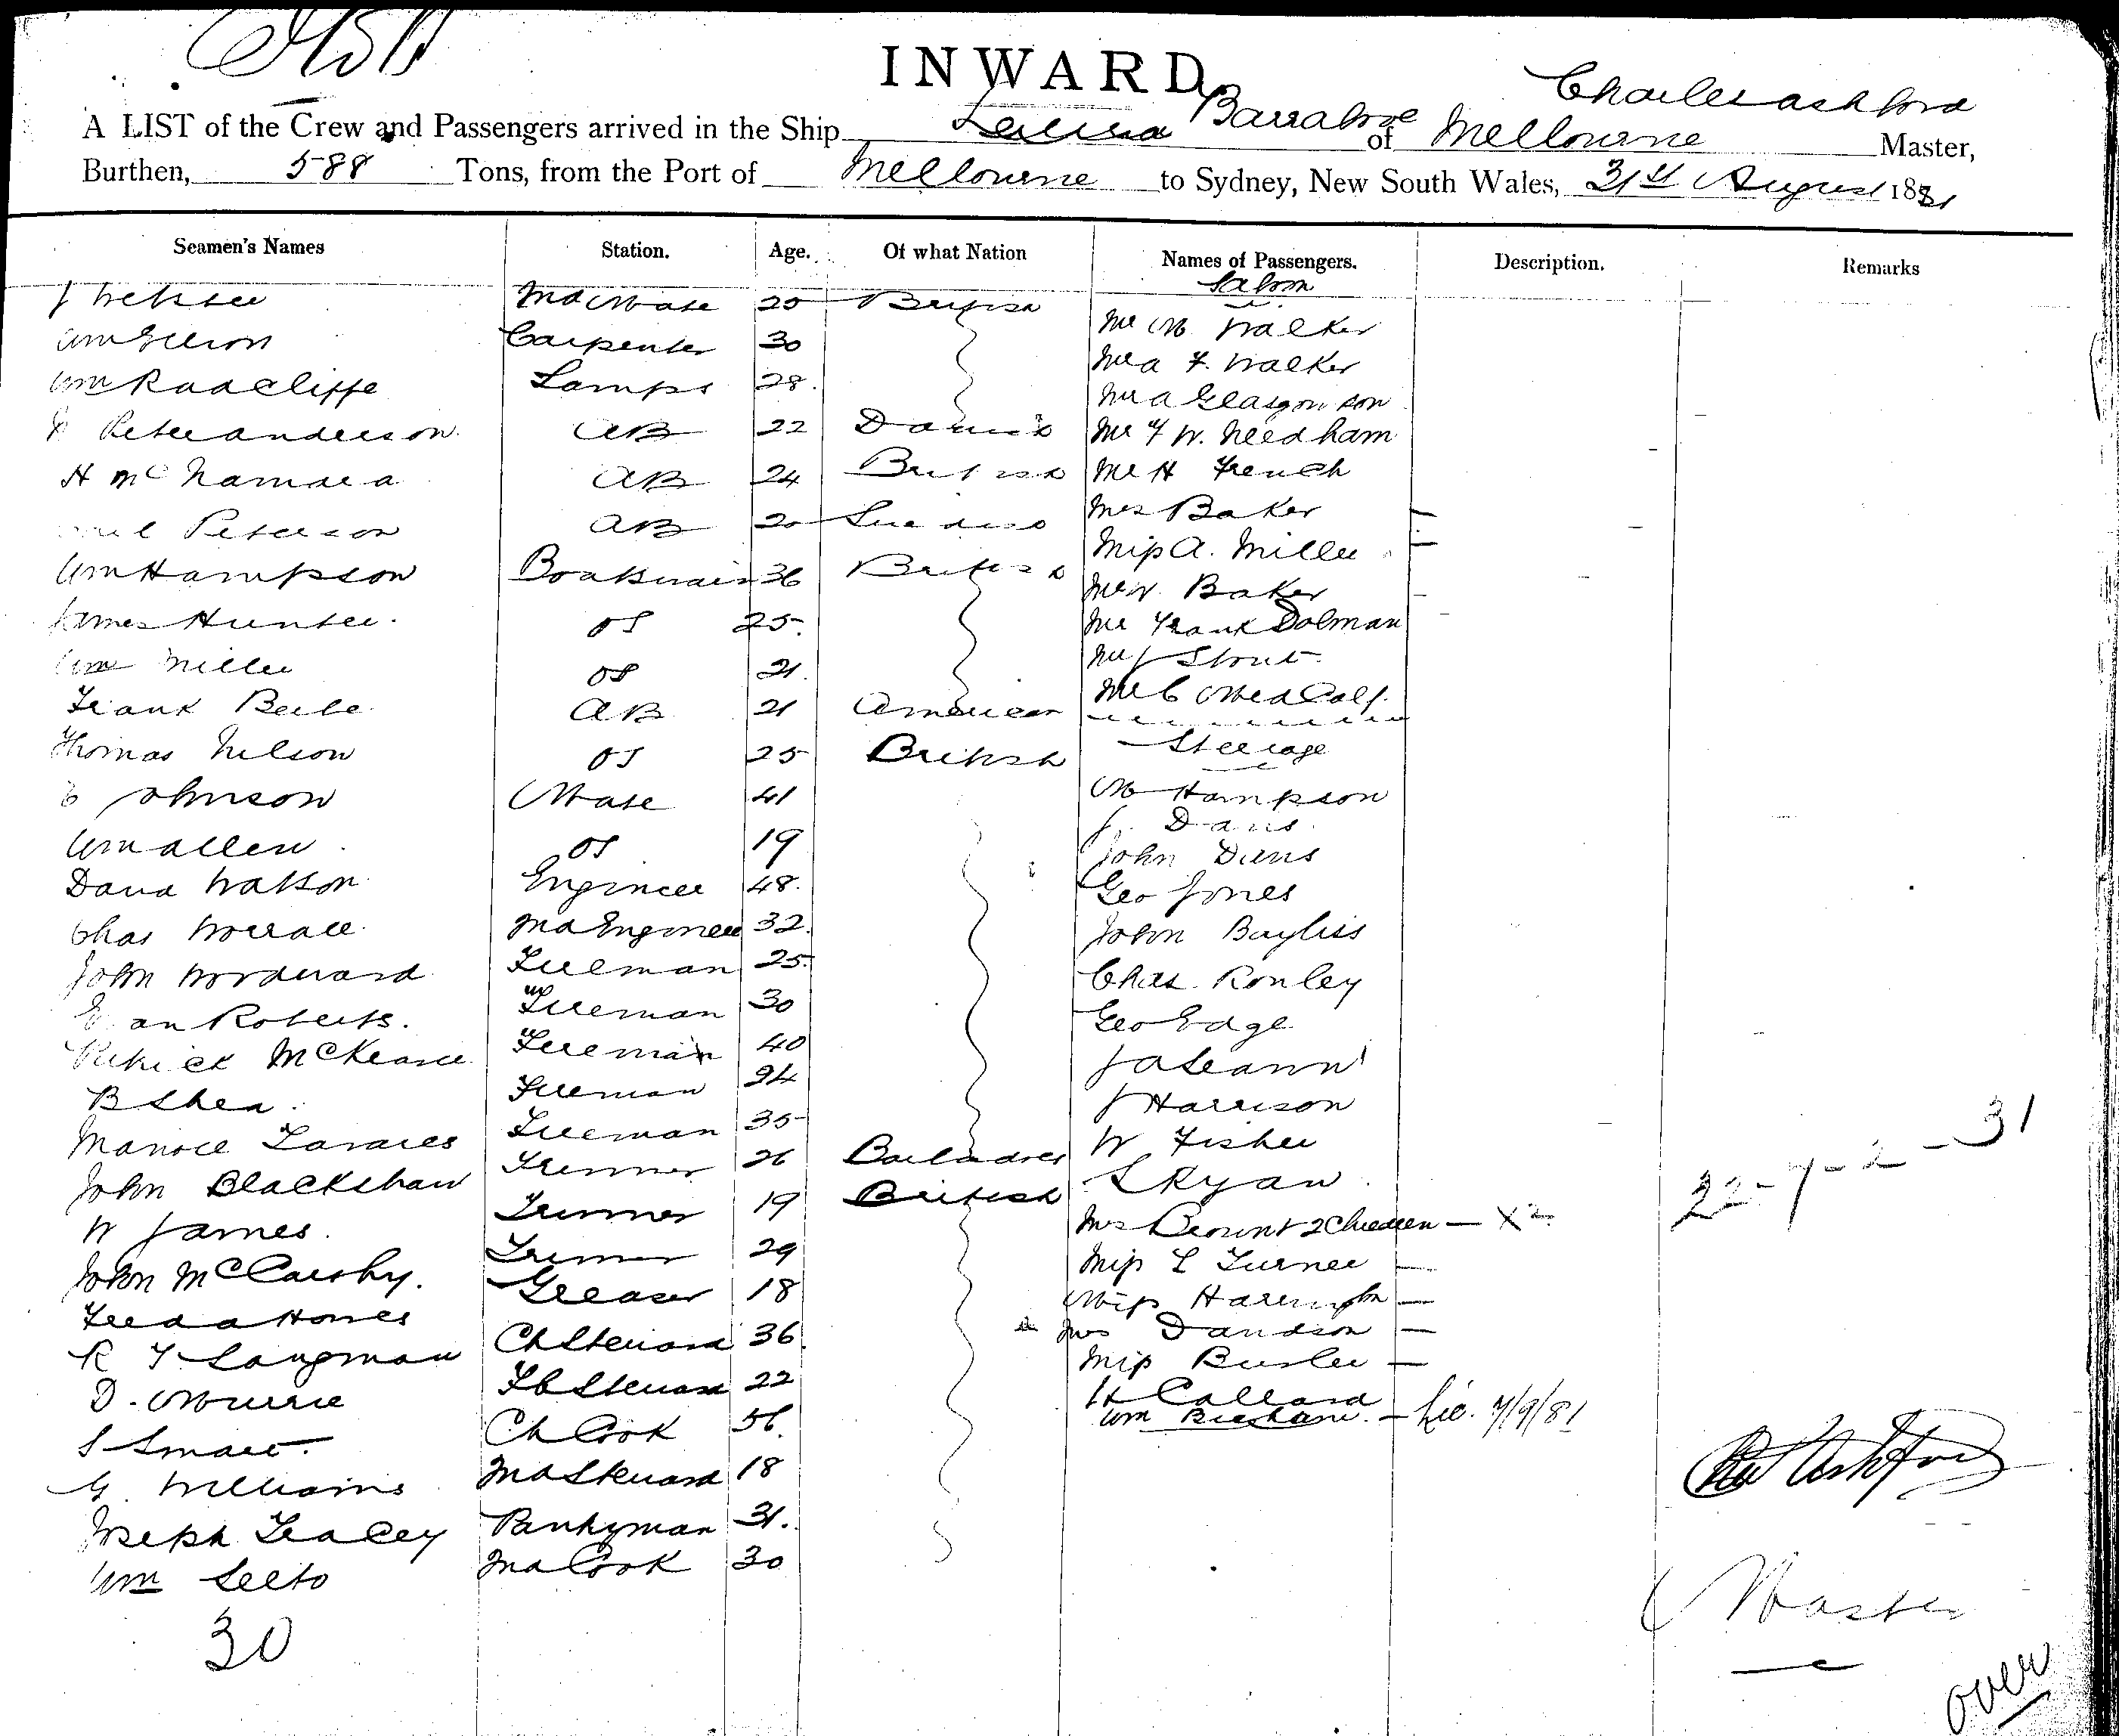 INWARD
Charles Ashford
A LIST of the Crew and Passengers arrived in the Ship Barrabool of Melbourne Master,
Burthen, 588 Tons, from the Port of Melbourne to Sydney, New South Wales, 31st August 1881
Seamen's Names Station. Age. Of what Nation Names of Passengers. Description. Remarks
Saloon
J 2nd Mate 25 British Mr M Walker
Wm Carpenter 30 Mr A F. Walker
Wm Radcliffe Lamps 28. Mr A
Peter Anderson AB 22 Mr F W. Needham
H McNamara AB 24 British Mr H French
Peterson AB 20 Mrs Baker
Wm Hampson Boatswain 36 British Miss A. Miller
Mr W. Baker
James Hunter. OS 25. Mr Frank Dolman
Wm Miller OS 21. Mr J Stout
Frank AB 21 American Mr C Medcalf.
Thomas Nelson OS 25 British Steerage
Johnson Mate 41 M Hampson
J. Davis
Wm Allen. OS 19 John
David Watson Engineer 48. Geo Jones
Chas Worrall. 2nd Engineer 32. John Bayliss
John Woodward Fireman 25. Chas. Rowley
Evan Roberts. Fireman 30 Geo Edge
Patrick Fireman 40 J
B Shea. Fireman 34 J Harrison
Fireman 35 W Fisher
John Blackshaw Trimmer 26 S Ryan
W James. Trimmer 19 British Mrs 2 Children — x 2
John McCarthy. Trimmer 29 Miss L Turner —
Greaser 18 Miss Harrington —
R F Langman Ch Steward 36 Mrs Davidson —
D. Steward 22 Miss Butler —
S Smart. Ch Cook 56. H Callard
Wm — Lic. 7/9/81
G. Williams 2nd Steward 18
Joseph Tracey Pantryman 31.
Wm 2nd Cook 30
30
22-7-2-31
Chas Ashford
Master
over